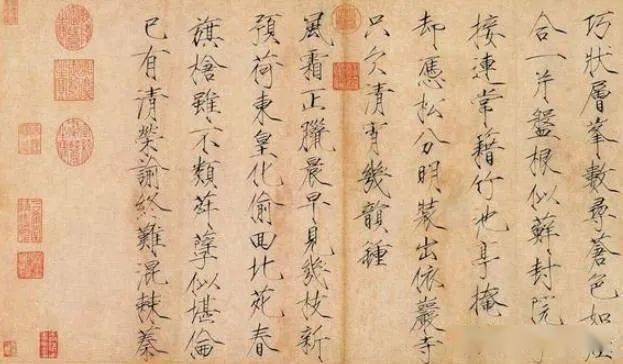 巧狀層峯數尋蒼色如
合一片盤根似蘚封院
接連常籍竹池亭掩
却憑松分明裝出依巖寺
只欠清宵幾韻鍾
風霜正臘晨早見幾枝新
預荷東皇化偷回北苑春
旗槍雖不類似堪倫
已有清榮諭終難混棘蓁